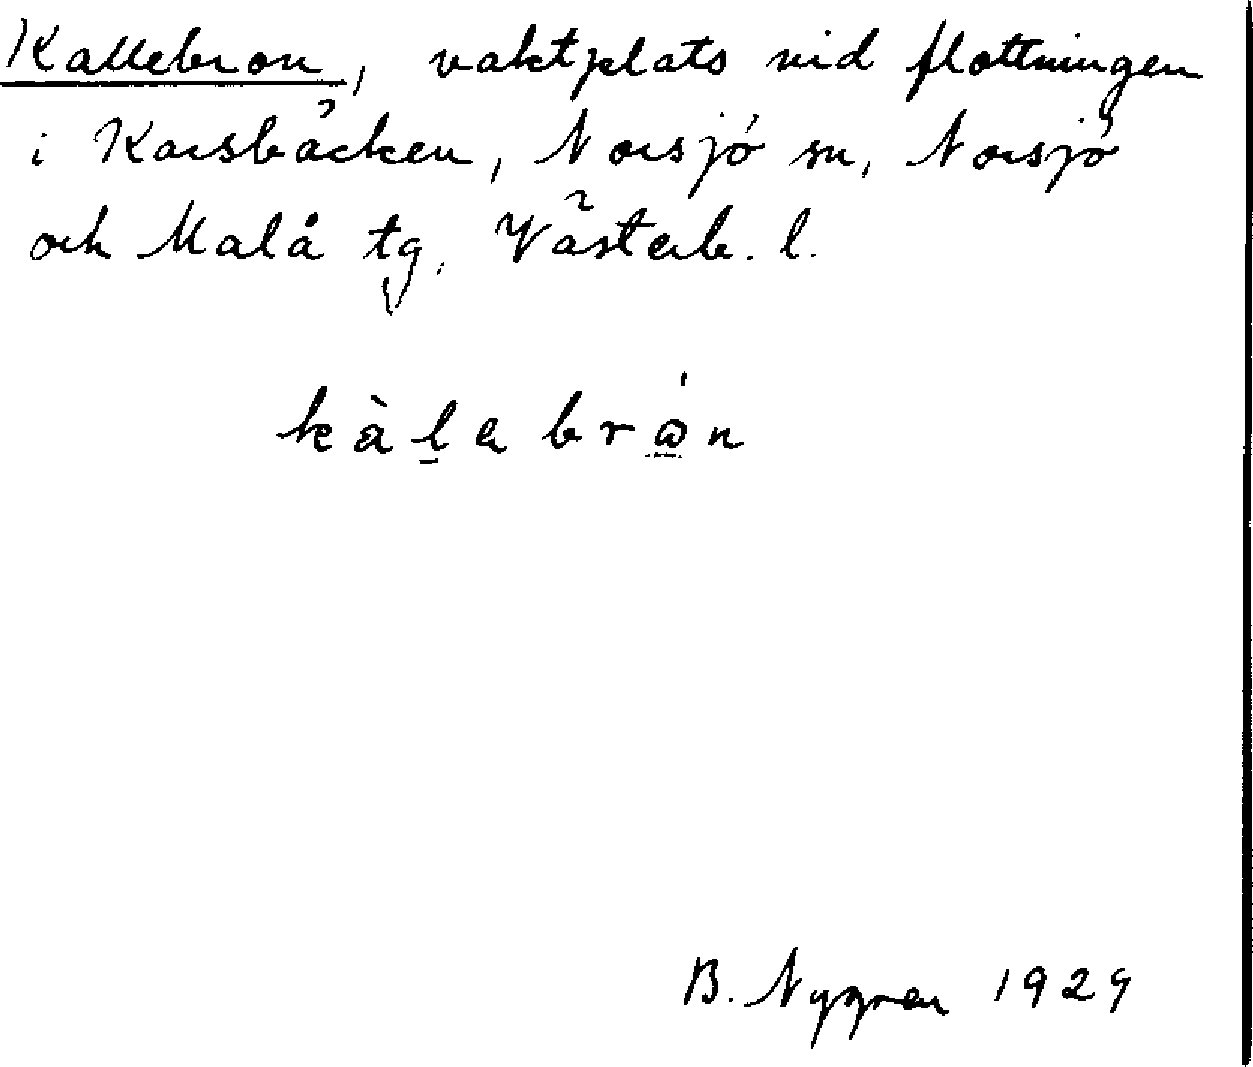 Kallebron, vaktplats vid flottningen
i Korsbäcken, Norsjö sn, Norsjö
och Malå tg, Västerb. l.
kàl̲a brώ̲n
B. Nygren 1929